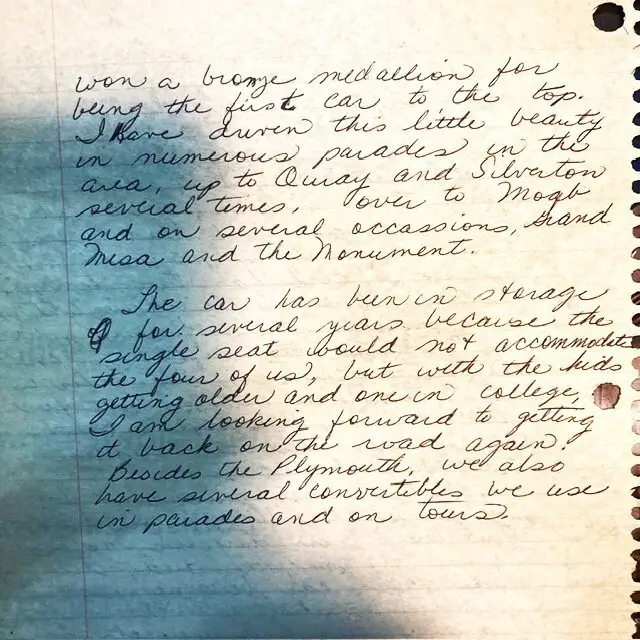 won a bronze medallion for
being the first car to the top.
I have driven this little beauty
in numerous parades in the
area, up to Ouray and Silverton
several times, over to Moab
and on several occassions, Grand
Mesa and the Monument.
The car has been in storage
for several years because the
single seat would not accommodate
the four of us, but with the kids
getting older and one in college,
I am looking forward to getting
it back on the road again.
Besides the Plymouth, we also
have several convertibles we use
in parades and on tours.